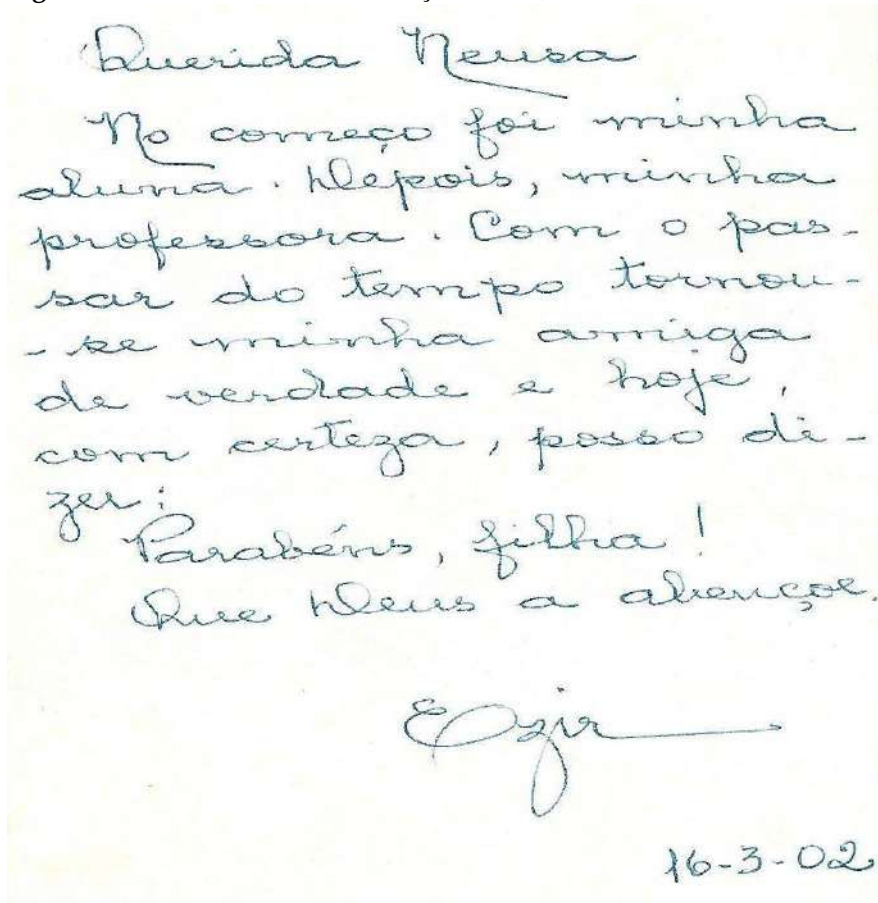 Querida Neusa
No começo foi minha
aluna. Depois, minha
professora. Com o pas-
sar do tempo tornou-
-se minha amiga
de verdade e hoje,
com certeza, posso di-
zer:
Parabéns, filha!
Que Deus a abençoe.
Ozir
16-3-02